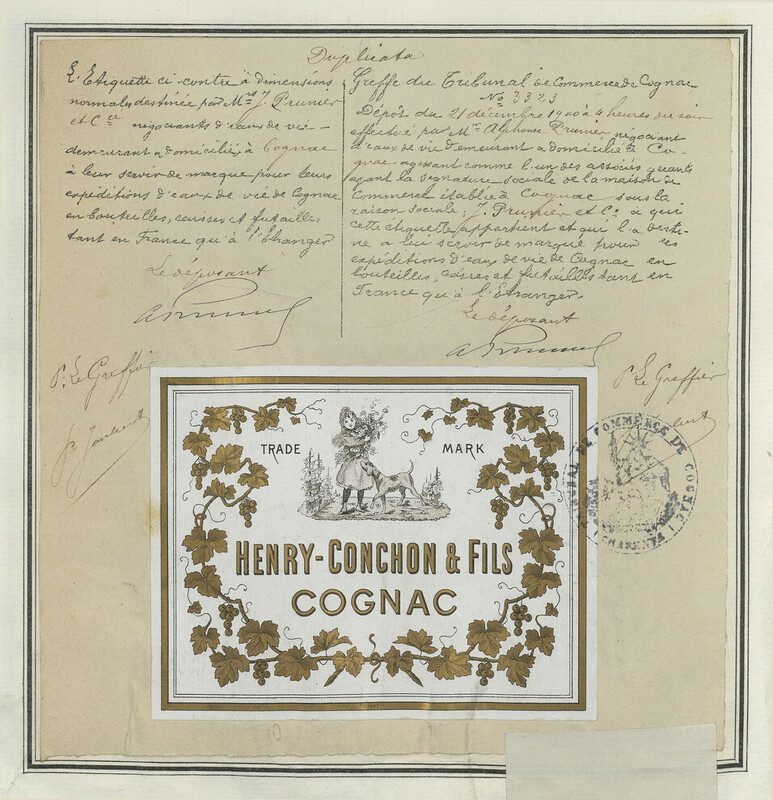 Duplicata
L'Etiquette ci contre à dimensions
normales destinée par Mrs J. Prunier
et Cie négociants d'eaux de vie -
demeurant & domicilié à Cognac
à leur servir de marque pour leurs
expéditions d'eaux de vie de Cognac
en bouteilles, caisses et futailles,
tant en France qu'à l'Etranger
Le déposant
Greffe du Tribunal de Commerce de Cognac
No 3323
Dépôt du 21 décembre 1900 à 4 heures du soir
effectué par Mr Alphonse Prunier négociant
d'eaux de vie demeurant & domicilié à Co-
gnac - agissant comme l'un des associés gérants
ayant la signature sociale de la maison de
Commerce établie à Cognac sous la
raison sociale: J. Prunier et Co à qui
cette étiquette appartient et qui l'a desti-
né à lui servir de marque pour ses
expéditions d'eaux de vie de Cognac en
bouteilles, caisses et futailles tant en
France qu'à l'Etranger.
Le déposant
P. Le Greffier
P. Le Greffier
TRADE MARK
HENRY-CONCHON & FILS
COGNAC
TRIBUNAL DE COMMERCE DE COGNAC
(CHARENTE)